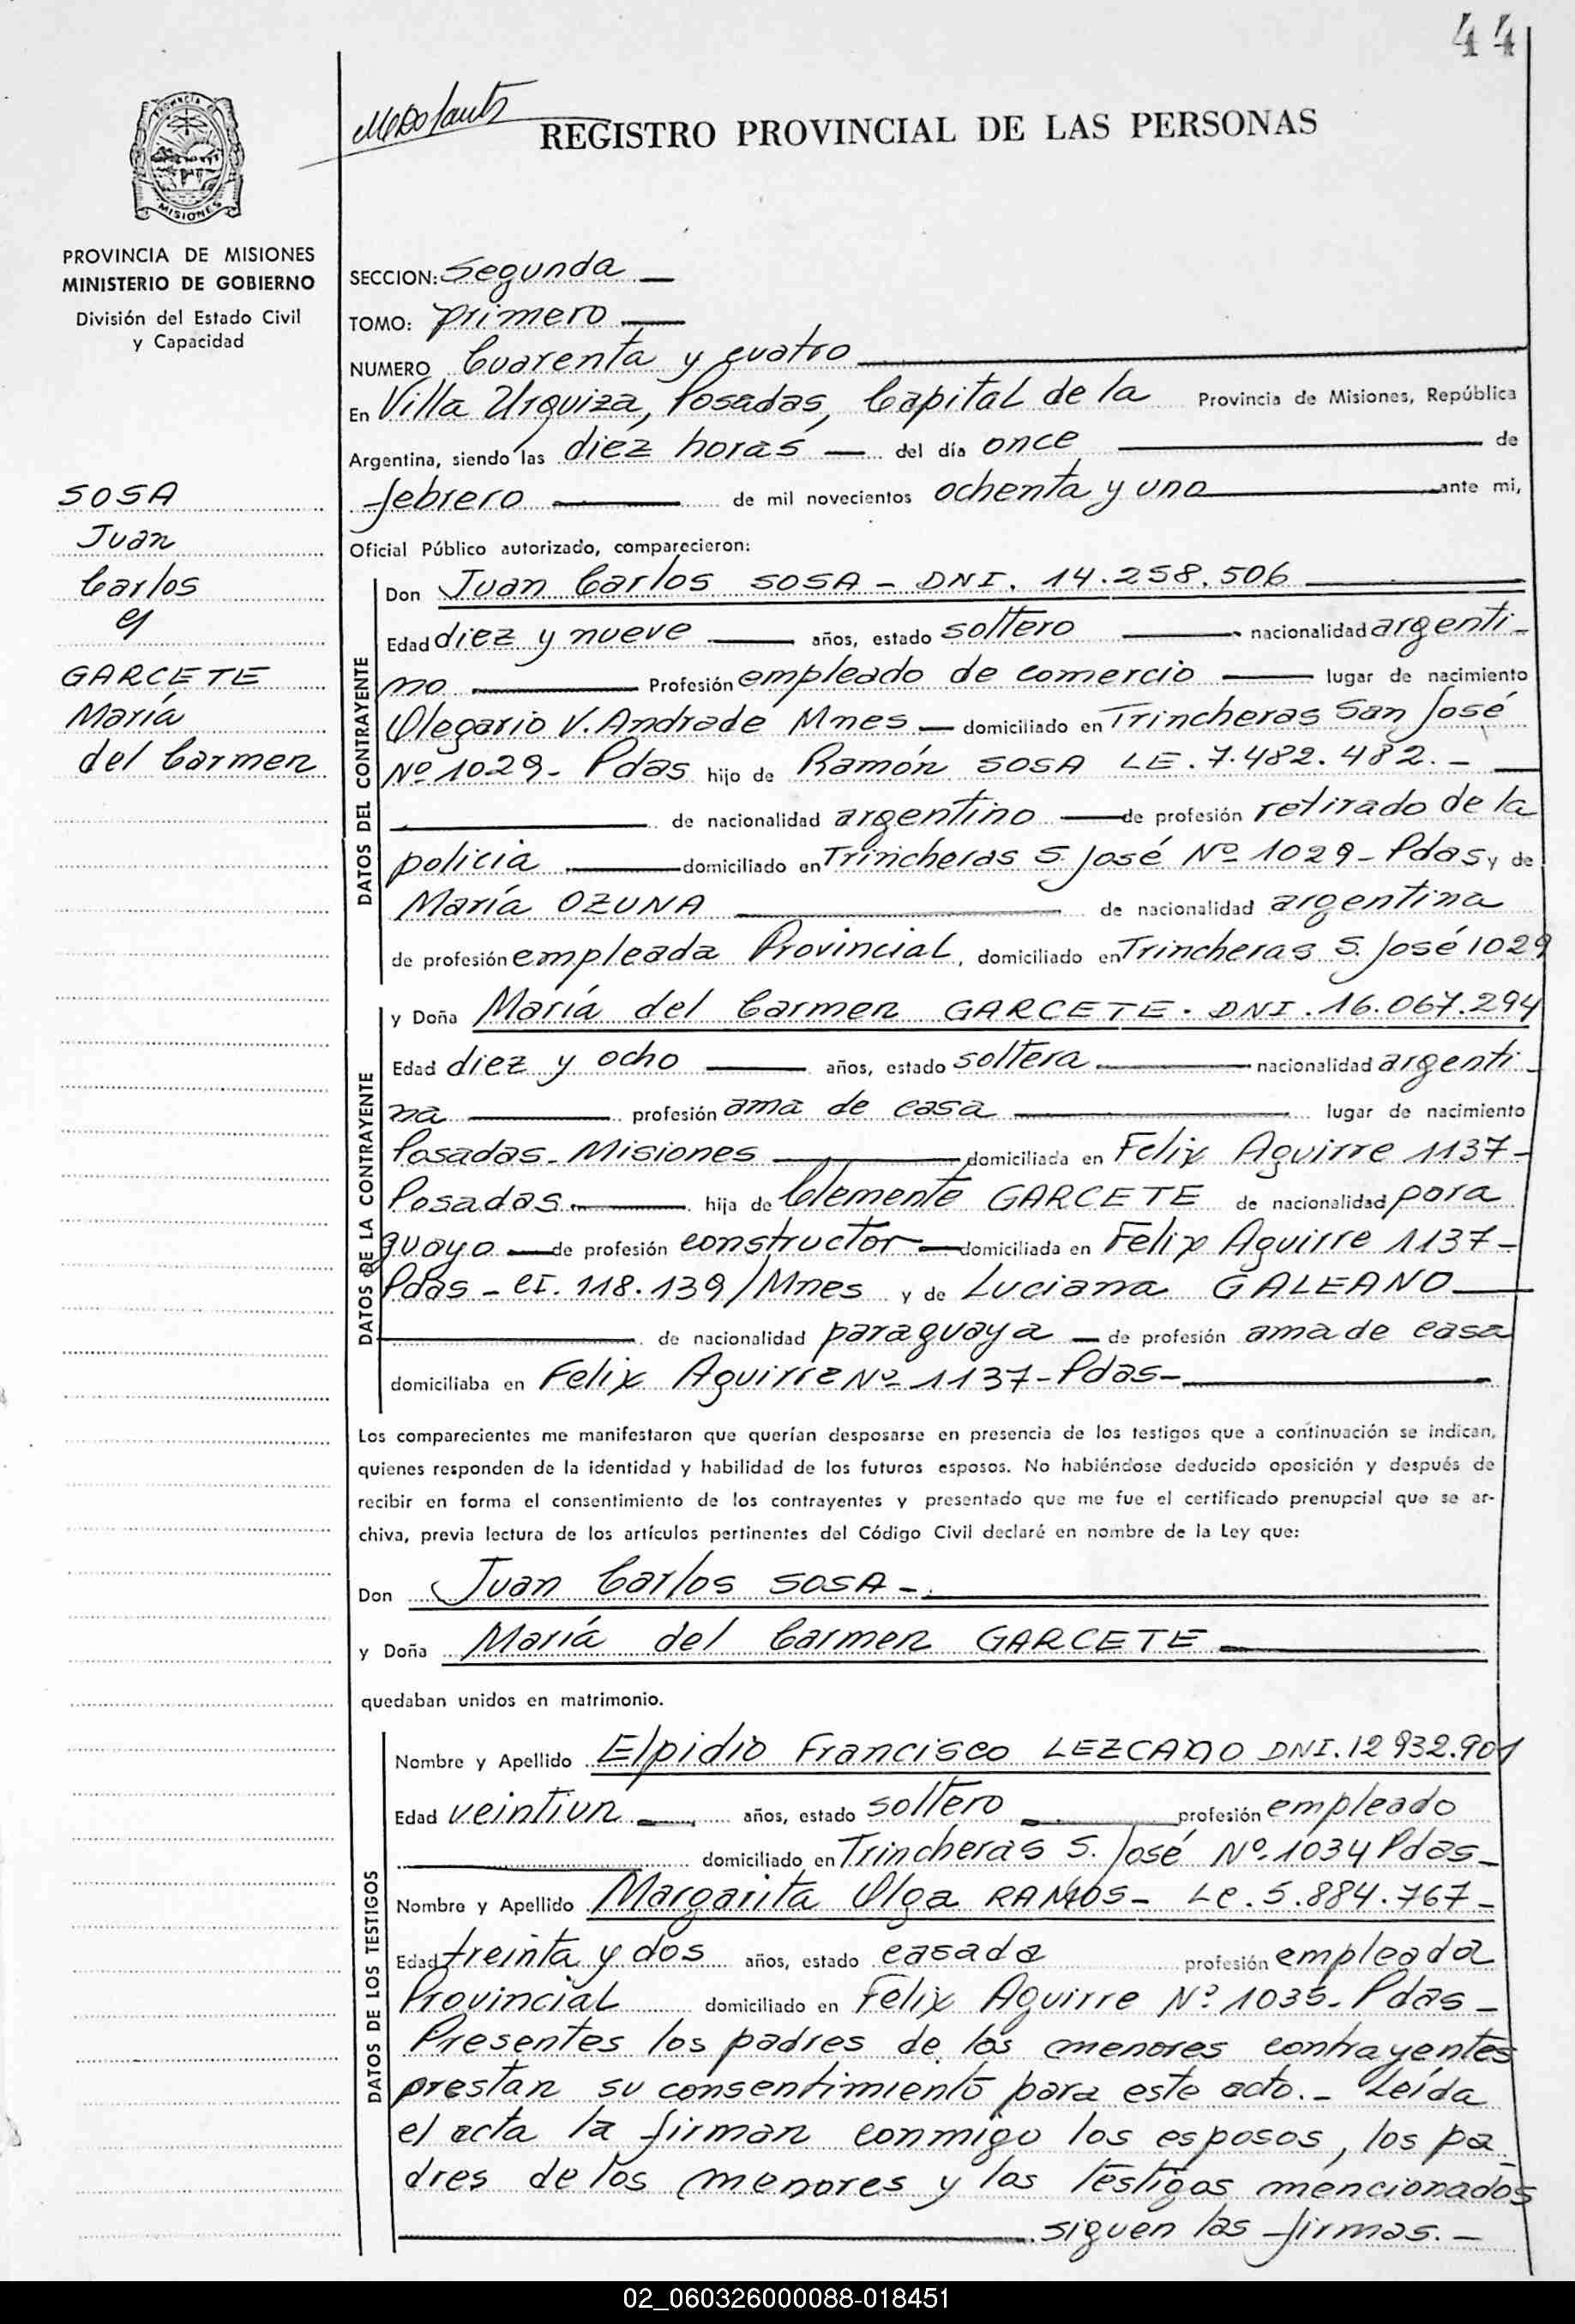 44
REGISTRO PROVINCIAL DE LAS PERSONAS
PROVINCIA DE
MISIONES
PROVINCIA DE MISIONES
MINISTERIO DE GOBIERNO
División del Estado Civil
y Capacidad
SOSA
Juan
Carlos
y
GARCETE
María
del Carmen
SECCION: Segunda —
TOMO: primero —
NUMERO Cuarenta y cuatro —
En Villa Urquiza, Posadas, Capital de la Provincia de Misiones, República
Argentina, siendo las diez horas — del día once — de
febrero — de mil novecientos ochenta y uno — ante mi,
Oficial Público autorizado, comparecieron:
DATOS DEL CONTRAYENTE
Don Juan Carlos SOSA - DNI. 14.258.506 —
Edad diez y nueve — años, estado soltero — nacionalidad argenti-
no — Profesión empleado de comercio — lugar de nacimiento
Olegario V. Andrade Mnes — domiciliado en Trincheras San José
Nº 1029 - Pdas hijo de Ramón SOSA LE. 7.482.482. - —
— de nacionalidad argentino — de profesión retirado de la
policia — domiciliado en Trincheras S. José Nº 1029 - Pdas y de
María OZUNA — de nacionalidad argentina
de profesión empleada Provincial, domiciliado en Trincheras S. José 1029
DATOS DE LA CONTRAYENTE
y Doña María del Carmen GARCETE. DNI. 16.067.294
Edad diez y ocho — años, estado soltera — nacionalidad argenti-
na — profesión ama de casa — lugar de nacimiento
Posadas - Misiones — domiciliada en Felix Aguirre 1137 -
Posadas — hija de Clemente GARCETE de nacionalidad para
guayo — de profesión constructor — domiciliada en Felix Aguirre 1137 -
Pdas - CI. 118.139/Mnes y de Luciana GALEANO —
— de nacionalidad paraguaya — de profesión ama de casa
domiciliaba en Felix Aguirre Nº 1137 - Pdas - —
Los comparecientes me manifestaron que querían desposarse en presencia de los testigos que a continuación se indican,
quienes responden de la identidad y habilidad de los futuros esposos. No habiéndose deducido oposición y después de
recibir en forma el consentimiento de los contrayentes y presentado que me fue el certificado prenupcial que se ar-
chiva, previa lectura de los artículos pertinentes del Código Civil declaré en nombre de la Ley que:
Don Juan Carlos SOSA - —
y Doña María del Carmen GARCETE —
quedaban unidos en matrimonio.
DATOS DE LOS TESTIGOS
Nombre y Apellido Elpidio Francisco LEZCANO DNI. 12 932.901
Edad veintiun — años, estado soltero — profesión empleado
— domiciliado en Trincheras S. José Nº. 1034 Pdas -
Nombre y Apellido Margarita Olga RAMOS - LC. 5.884.767 -
Edad treinta y dos años, estado casada profesión empleada
Provincial domiciliado en Felix Aguirre Nº 1035 - Pdas -
Presentes los padres de los menores contrayentes
prestan su consentimiento para este acto. - Leída
el acta la firman conmigo los esposos, los pa
dres de los menores y los testigos mencionados
— siguen las firmas. -
02_060326000088-018451